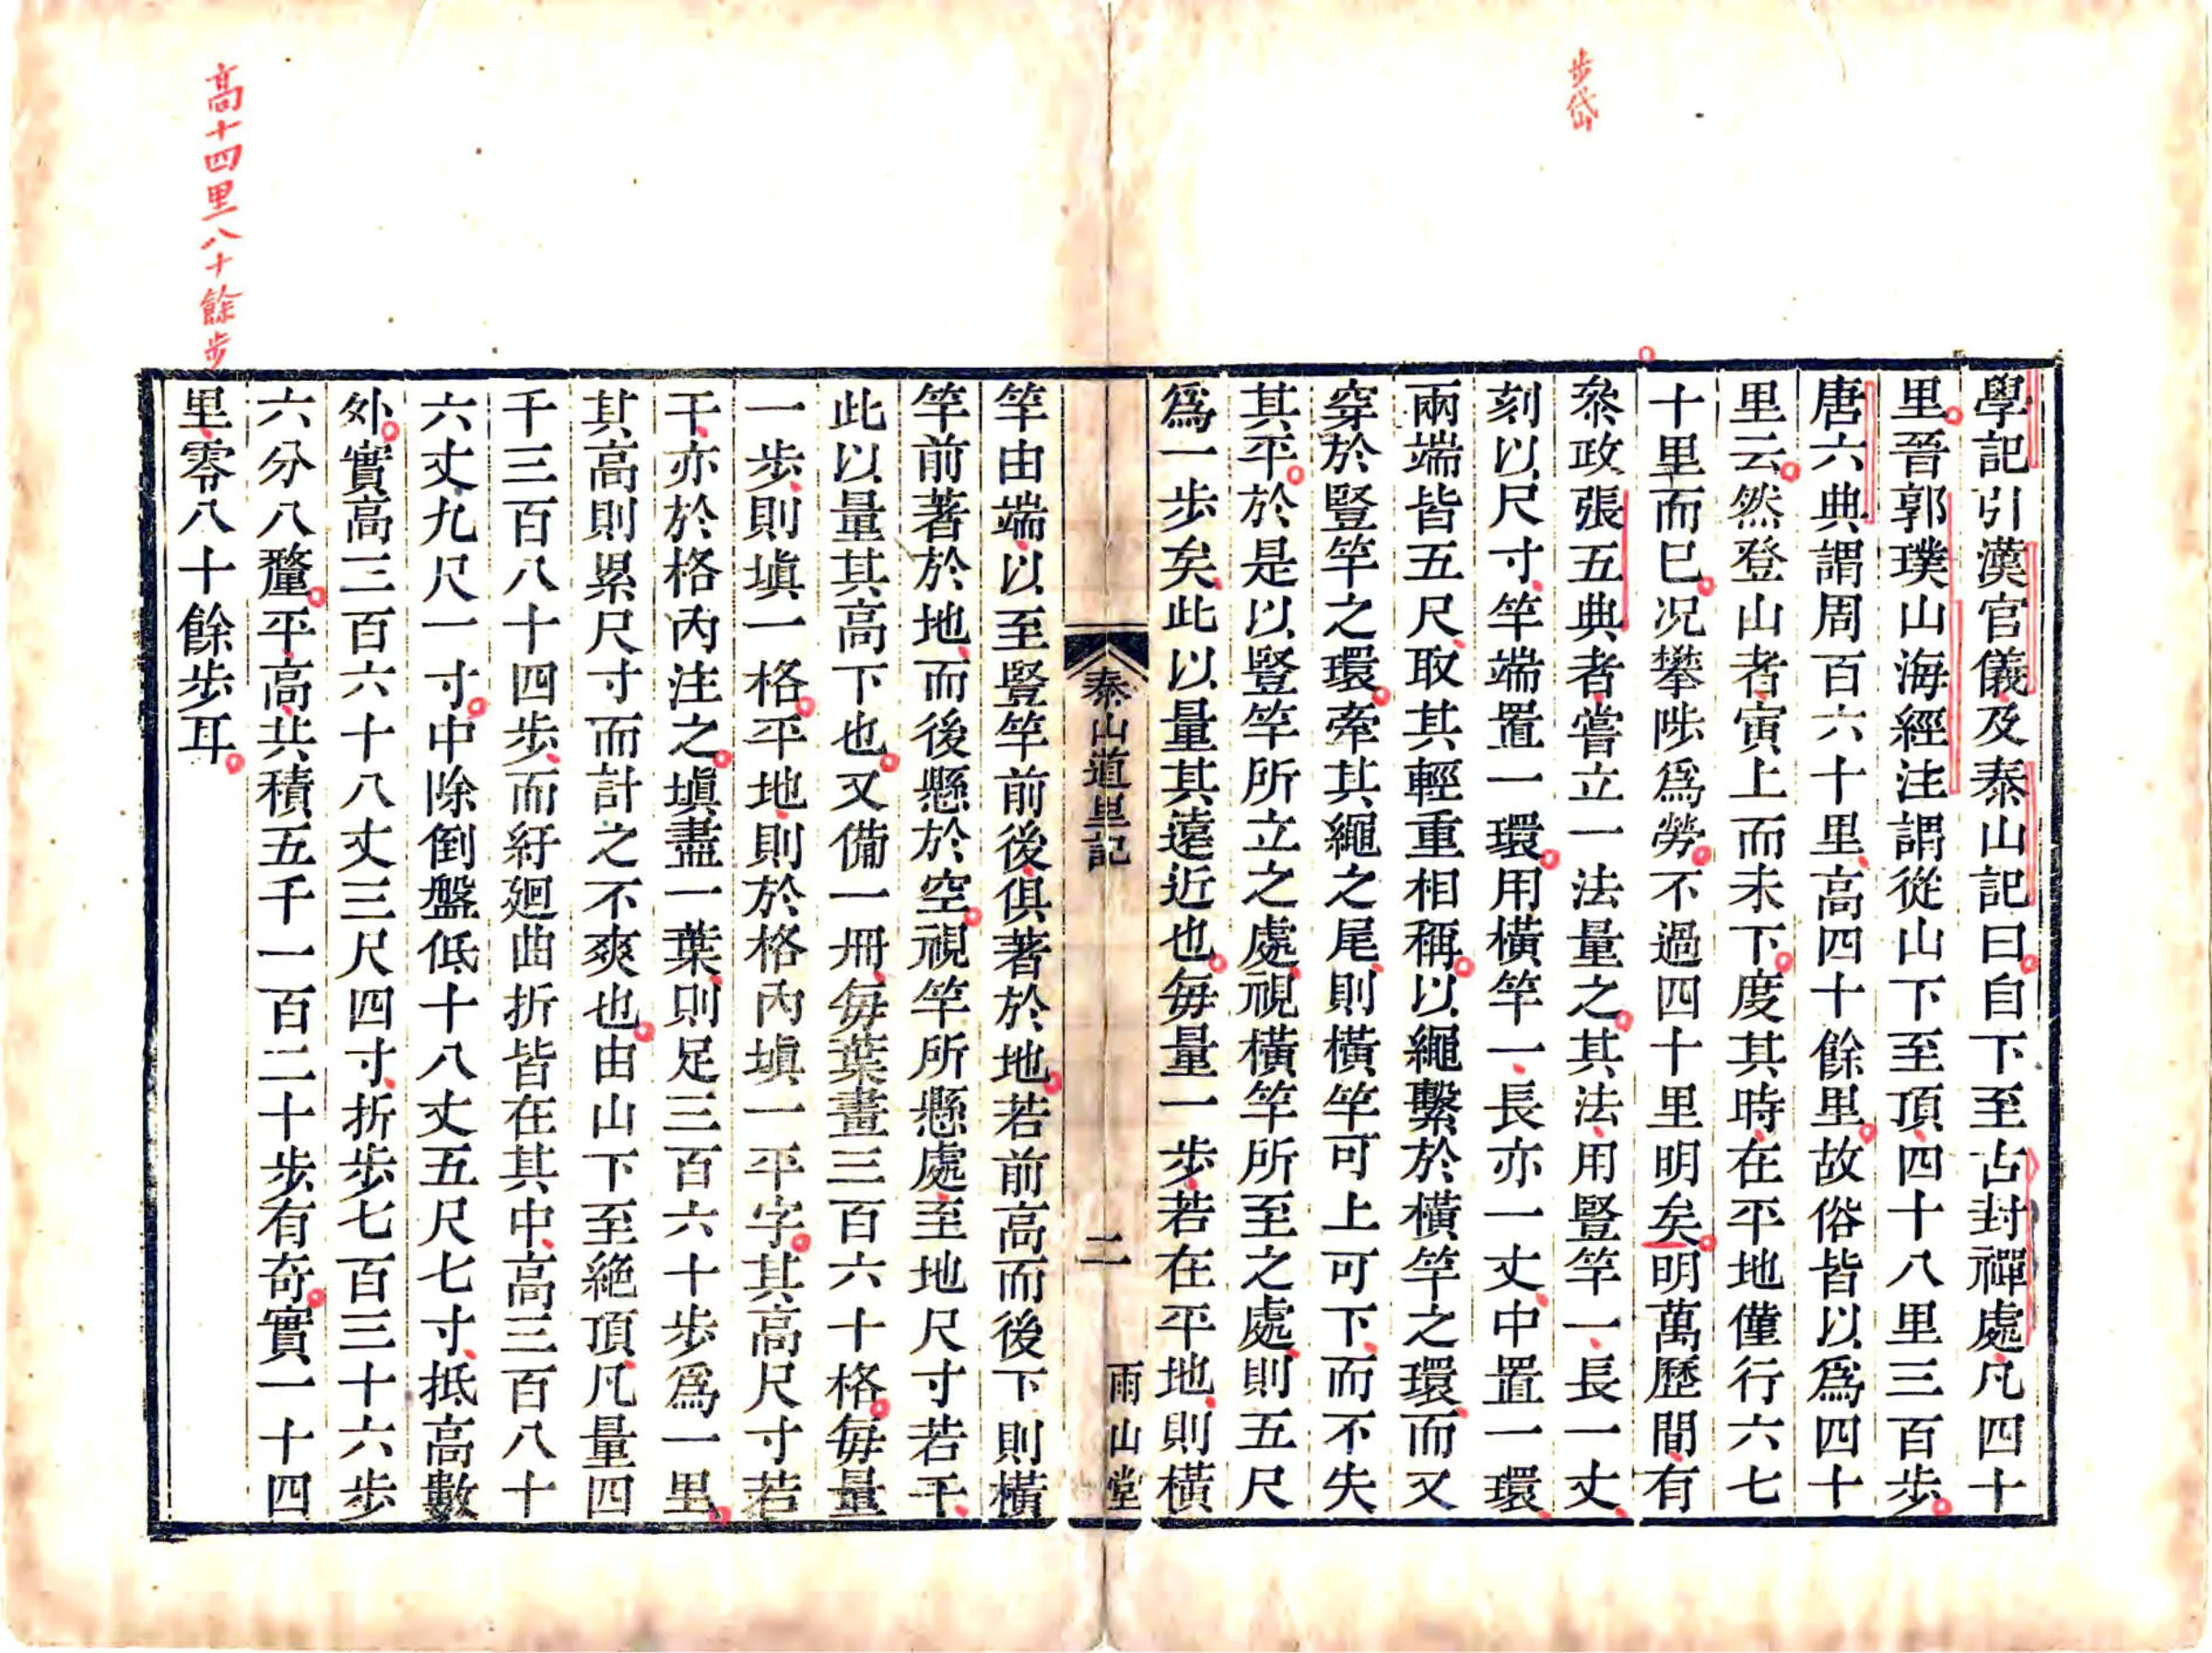 步岱
學記引漢官儀及泰山記曰自下至古封禪處凡四十
里晉郭璞山海經注謂從山下至頂四十八里三百步
唐六典謂周百六十里高四十餘里故俗皆以爲四十
里云然登山者寅上而未下度其時在平地僅行六七
十里而巳况攀陟爲勞不過四十里明矣明萬歷間有
叅政張五典者嘗立一法量之其法用豎竿一長一丈
刻以尺寸竿端置一環用橫竿一長亦一丈中置一環
兩端皆五尺取其輕重相稱以繩繫於橫竿之環而又
穿於豎竿之環牽其繩之尾則橫竿可上可下而不失
其平於是以豎竿所立之處視橫竿所至之處則五尺
爲一步矣此以量其遠近也每量一步若在平地則橫
泰山道里記
二
雨山堂
竿由端以至豎竿前後俱著於地若前高而後下則橫
竿前著於地而後懸於空視竿所懸處至地尺寸若干
此以量其高下也又備一冊每葉畫三百六十格每量
一步則塡一格平地則於格內塡一平字其高尺寸若
干亦於格內注之塡盡一葉則足三百六十步爲一里
其高則累尺寸而計之不爽也由山下至絶頂凡量四
千三百八十四步而紆廻曲折皆在其中高三百八十
六丈九尺一寸中除倒盤低十八丈五尺七寸抵高數
外實高三百六十八丈三尺四寸折步七百三十六步
六分八釐平高共積五千一百二十步有奇實一十四
里零八十餘步耳
高十四里八十餘步